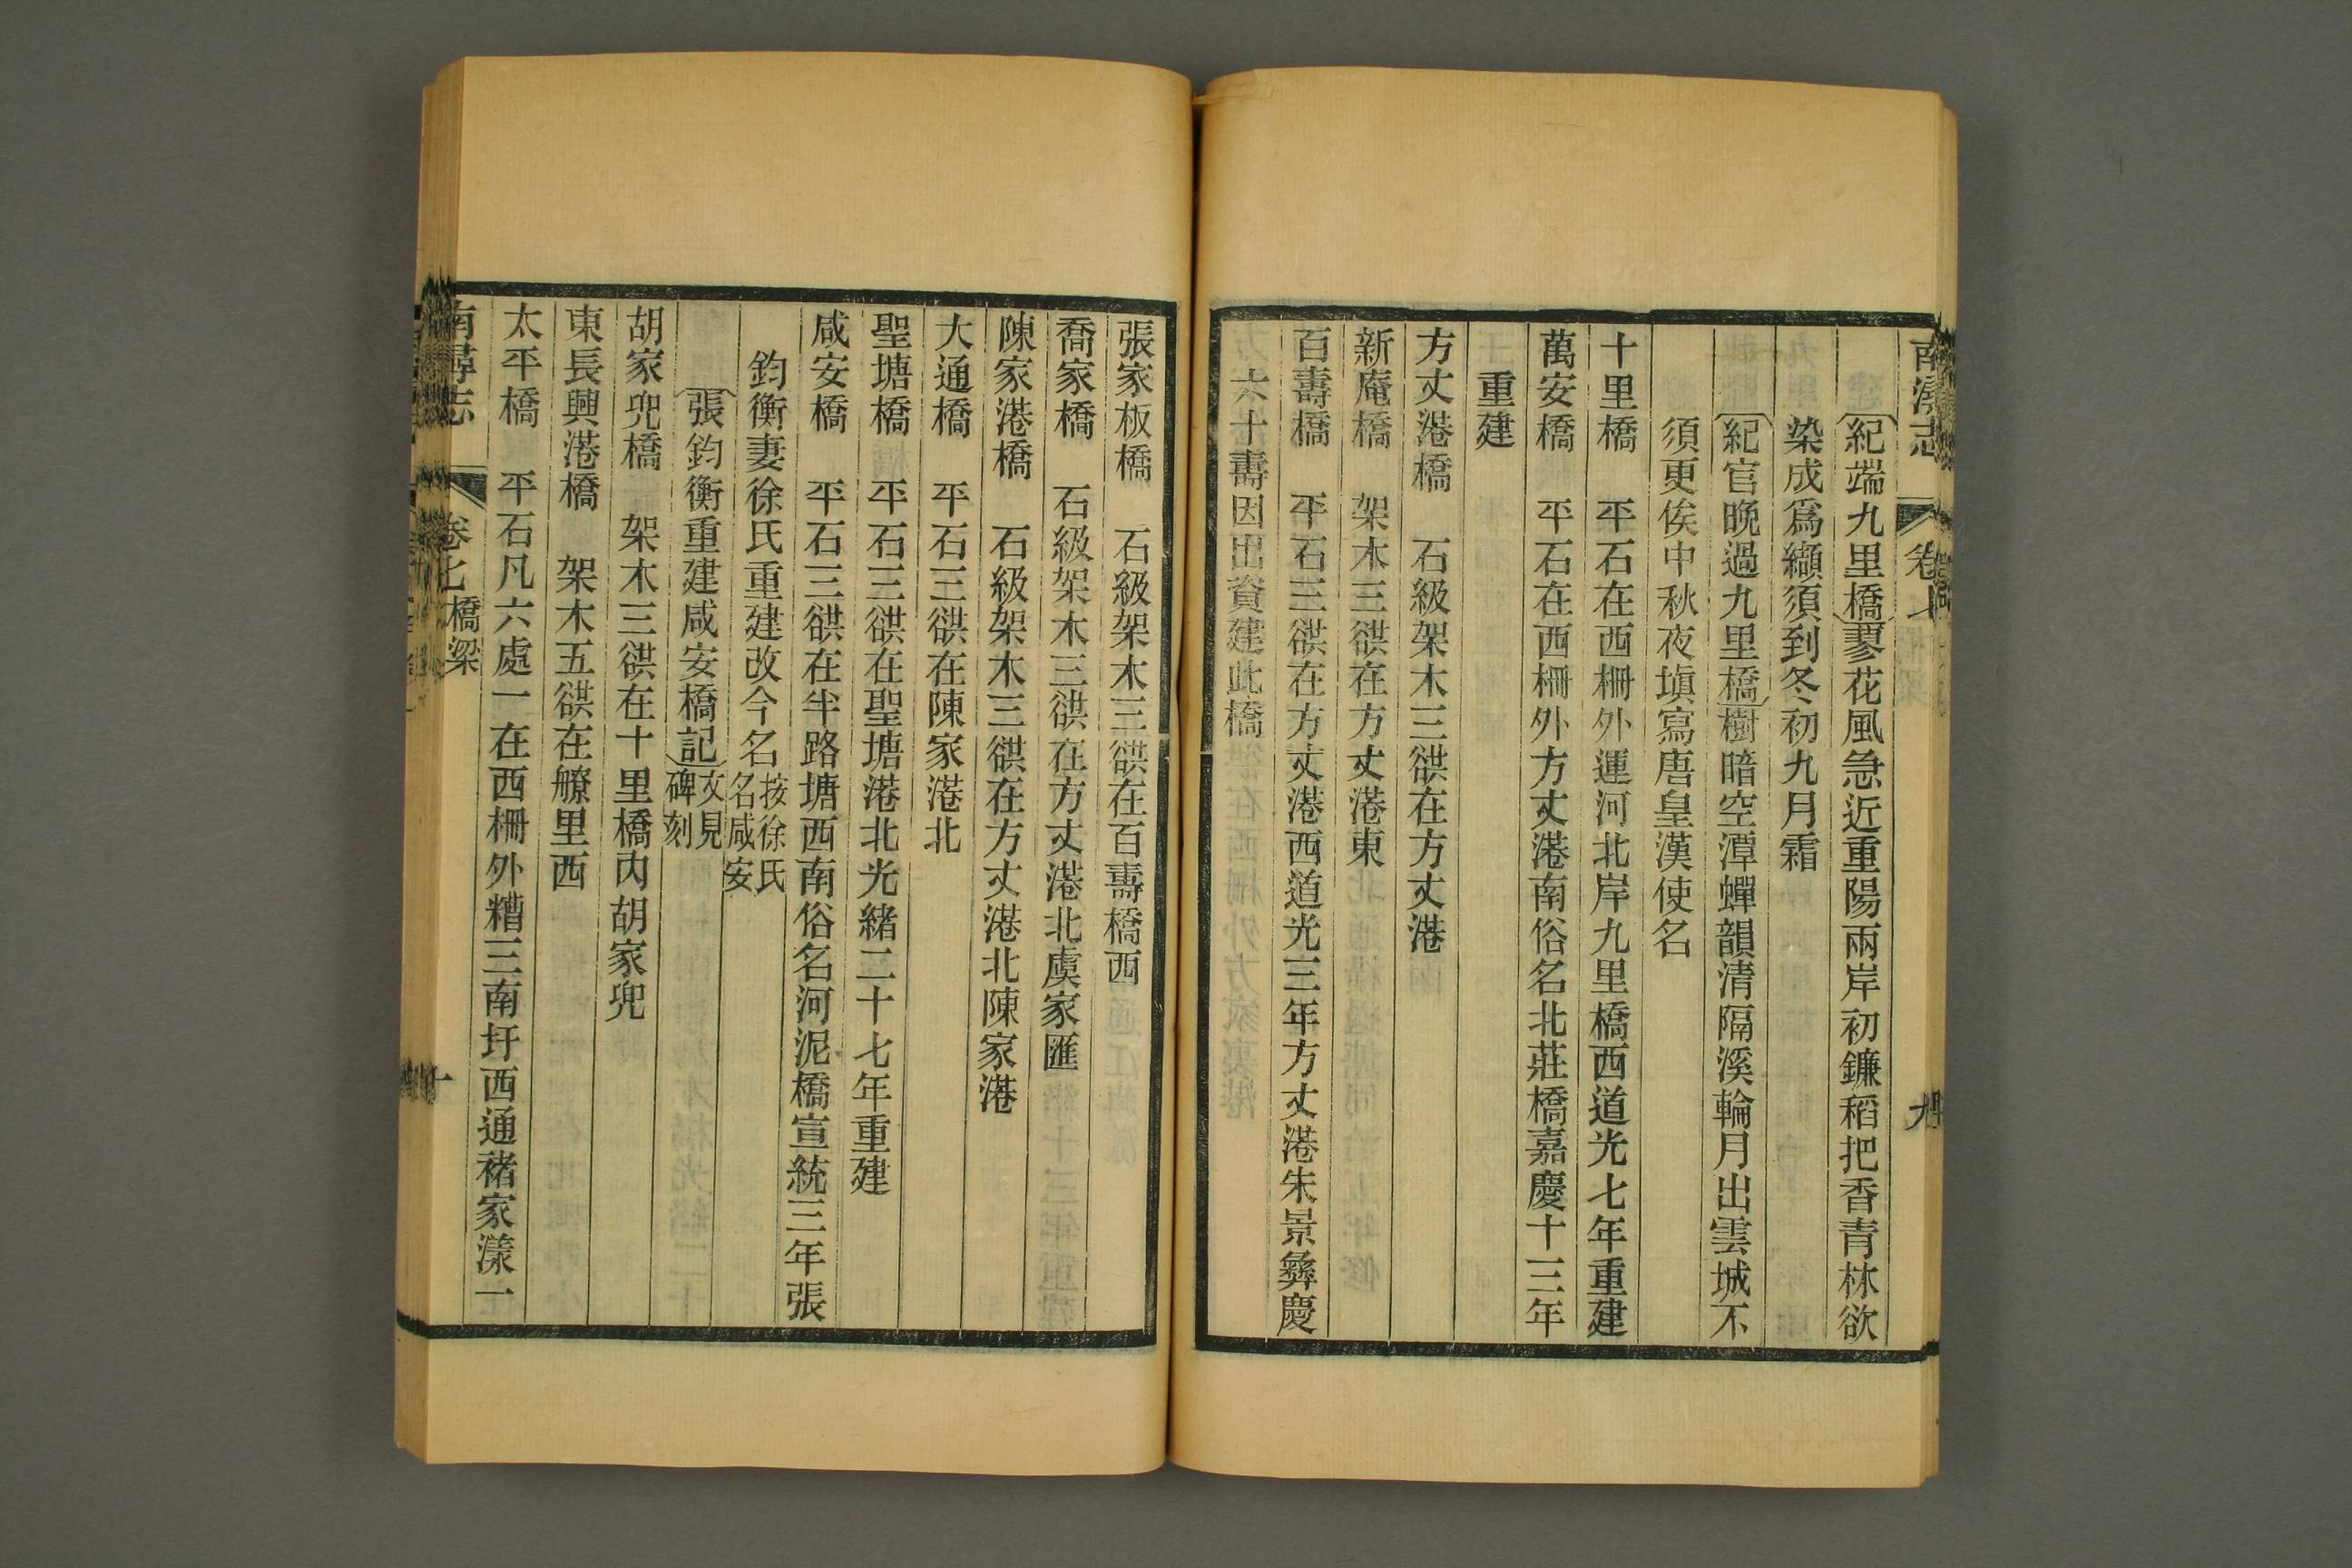 南潯志 卷七 九
紀端九里橋蓼花風急近重陽兩岸初鐮稻把香青林欲
染成爲纈須到冬初九月霜
紀官晚過九里橋樹暗空潭蟬韻清隔溪輪月出雲城不
須更俟中秋夜塡寫唐皇漢使名
十里橋 平石在西柵外運河北岸九里橋西道光七年重建
萬安橋 平石在西柵外方丈港南俗名北莊橋嘉慶十三年
重建
方丈港橋 石級架木三𧯦在方丈港
新庵橋 架木三𧯦在方丈港東
百壽橋 平石三𧯦在方丈港西道光三年方丈港朱景彝慶
六十壽因出資建此橋
張家板橋 石級架木三𧯦在百壽橋西
喬家橋 石級架木三𧯦在方丈港北虞家匯
陳家港橋 石級架木三𧯦在方丈港北陳家港
大通橋 平石三𧯦在陳家港北
聖塘橋 平石三𧯦在聖塘港北光緒二十七年重建
咸安橋 平石三𧯦在半路塘西南俗名河泥橋宣統三年張
鈞衡妻徐氏重建改今名按徐氏名咸安
張鈞衡重建咸安橋記文見碑刻
胡家兜橋 架木三𧯦在十里橋內胡家兜
東長興港橋 架木五𧯦在艞里西
太平橋 平石凡六處一在西柵外糟三南圩西通褚家漾一
南潯志 卷七 橋梁 十